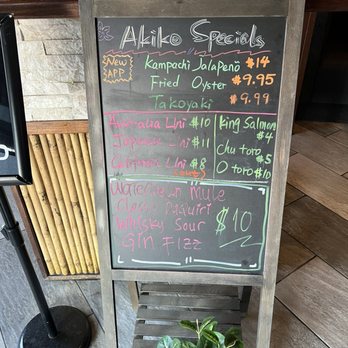 Akiko Specials
New APP
Kampachi Jalapeño $14
Fried Oyster $9.95
Takoyaki $9.99
Australia Uni $10
Japanese Uni $11
California Uni $8
(out)
King Salmon $4
Chu toro $5
O toro $10
Watermelon Mule
Classic Daiquiri
Whisky Sour
Gin Fizz
$10